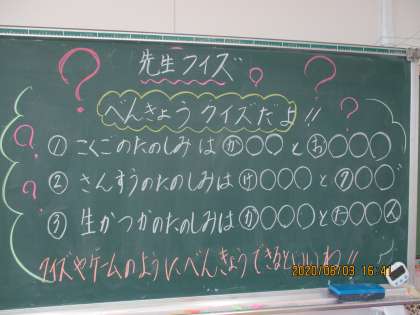 先生クイズ
べんきょうクイズだよ!!
① こくごのたのしみは か○○○ と お○○○
② さんすうのたのしみは け○○○ と
③ 生かつかのたのしみは か○○○ と た○○ん
クイズやゲームのようにべんきょうできるといいわ!!
2020/06/03 16:41